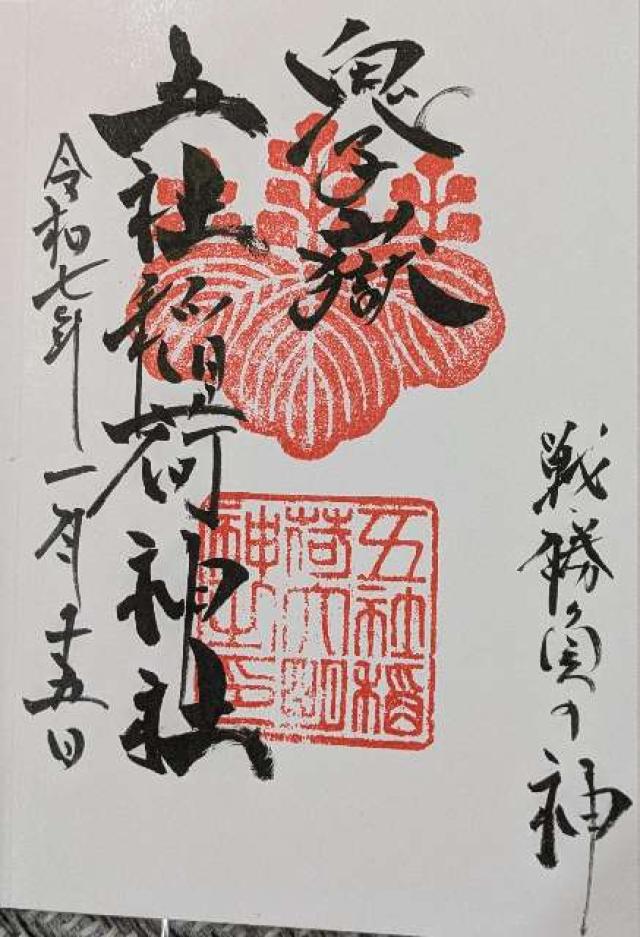 戦・勝負の神
鬼子嶽
五社稲荷神社
令和七年一月十五日
五社稲
荷大明
神之印